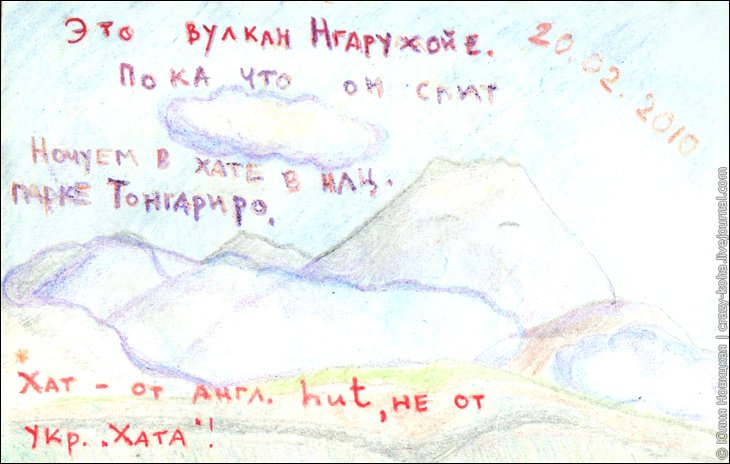 Это вулкан Нгарухойе.
20.02.2010
Пока что он спит
Ночуем в хате в нац.
парке Тонгариро.
*Хат - от англ. hut, не от
укр. "Хата"!
© Юлия Новицкая | crazy-koha.livejournal.com